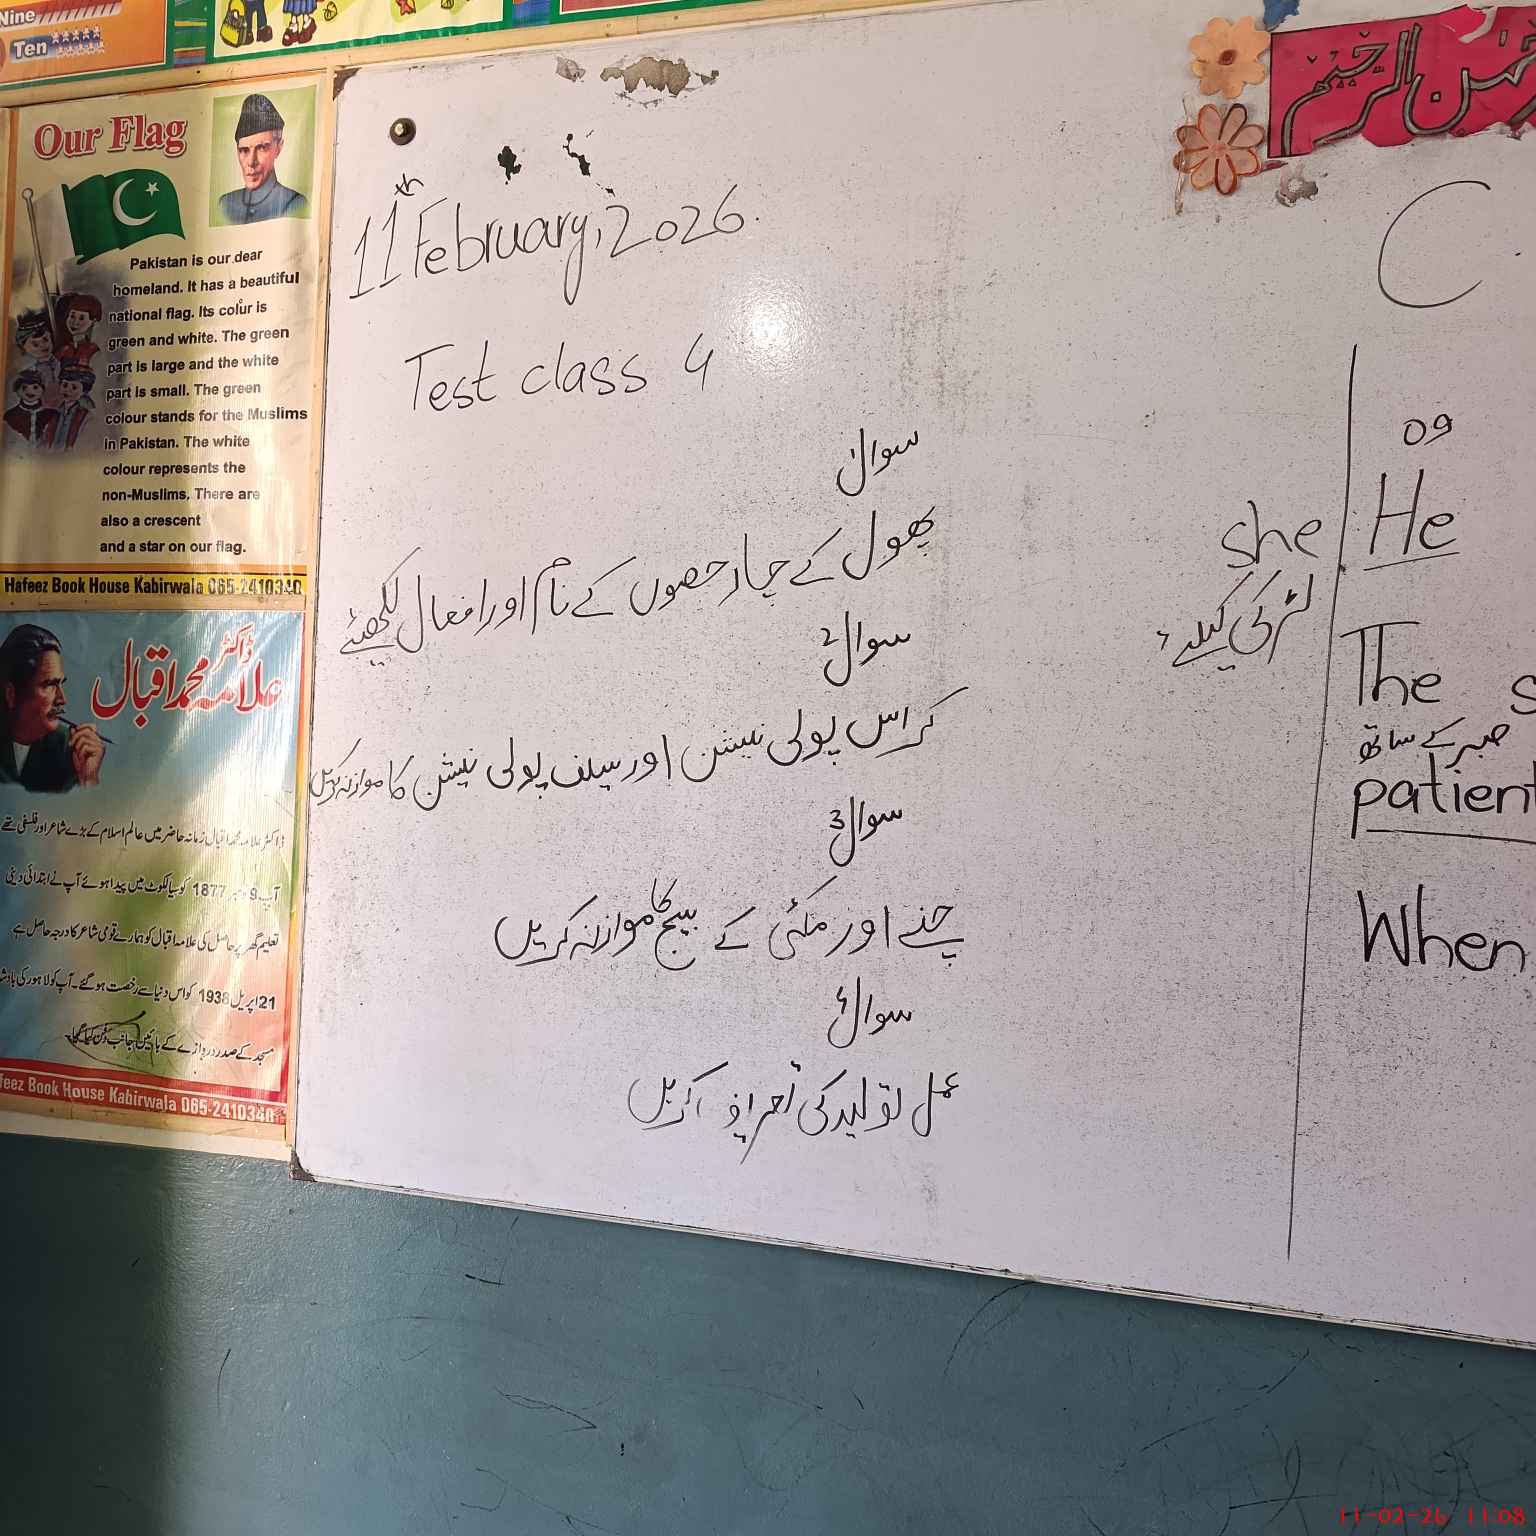 Nine
Ten
Our Flag
Pakistan is our dear
homeland. It has a beautiful
national flag. Its colour is
green and white. The green
part is large and the white
part is small. The green
colour stands for the Muslims
in Pakistan. The white
colour represents the
non-Muslims. There are
also a crescent
and a star on our flag.
Hafeez Book House Kabirwala 065-2410340
ڈاکٹر
علامہ محمد اقبال
ڈاکٹر علامہ محمد اقبال زمانہ حاضر میں عالم اسلام کے بڑے شاعر اور فلسفی تھے
آپ 9 نومبر 1877 کو سیالکوٹ میں پیدا ہوئے آپ نے ابتدائی دینی
تعلیم گھر پر حاصل کی علامہ اقبال کو ہمارے قومی شاعر کا درجہ حاصل ہے
21 اپریل 1938 کو اس دنیا سے رخصت ہو گئے۔ آپ کو لاہور کی
مسجد کے صدر دروازے کے بائیں جانب دفن کیا گیا۔
feez Book House Kabirwala 065-2410340
11th February, 2026.
Test class 4
سوال 1
پھول کے چار حصوں کے نام اور افعال لکھیئے
سوال 2
کراس پولی نیشن اور سیلف پولی نیشن کا موازنہ کریں
سوال 3
چنے اور مکئی کے بیج کا موازنہ کریں
سوال
عمل تولید کی تعریف کریں
الرحیم
C
وہ
she He
لڑکی کیلئے
The s
صبر کے ساتھ
patient
When
11-02-26 11:08